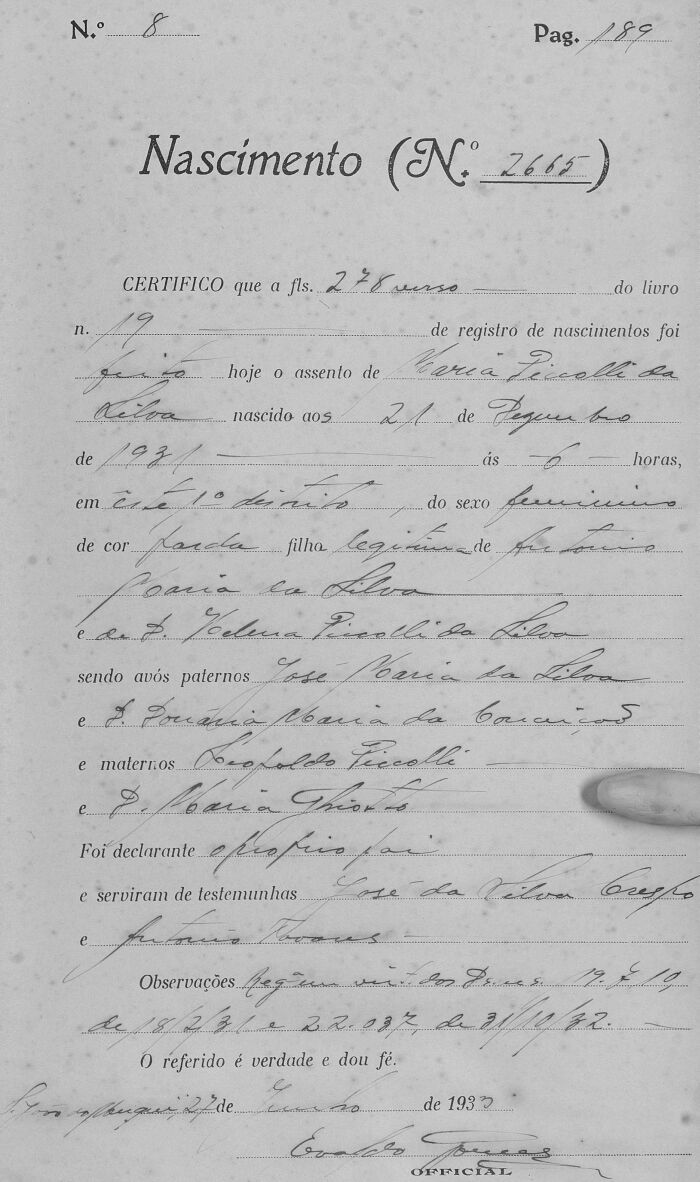 N.º 8 Pag. 189
Nascimento (N.º 2665)
CERTIFICO que a fls. 278 verso do livro
n. 19 de registro de nascimentos foi
feito hoje o assento de Maria Piccolli da
Silva nascido aos 21 de Dezembro
de 1931 ás 6 horas,
em êste 1º distrito, do sexo feminino
de cor parda filha legitima de Antonio
Maria da Silva
e de D. Helena Piccolli da Silva
sendo avós paternos José Maria da Silva
e D. Maria da Conceição
e maternos Leopoldo Piccolli
e D. Maria Ghiotto
Foi declarante o proprio pai
e serviram de testemunhas José da Silva Crespo
e Antonio Tavares
Observações dos 19.710,
de 18/2/31 e 22.037, de 31/10/32.
O referido é verdade e dou fé.
27 de Junho de 1933
Evaldo
OFFICIAL